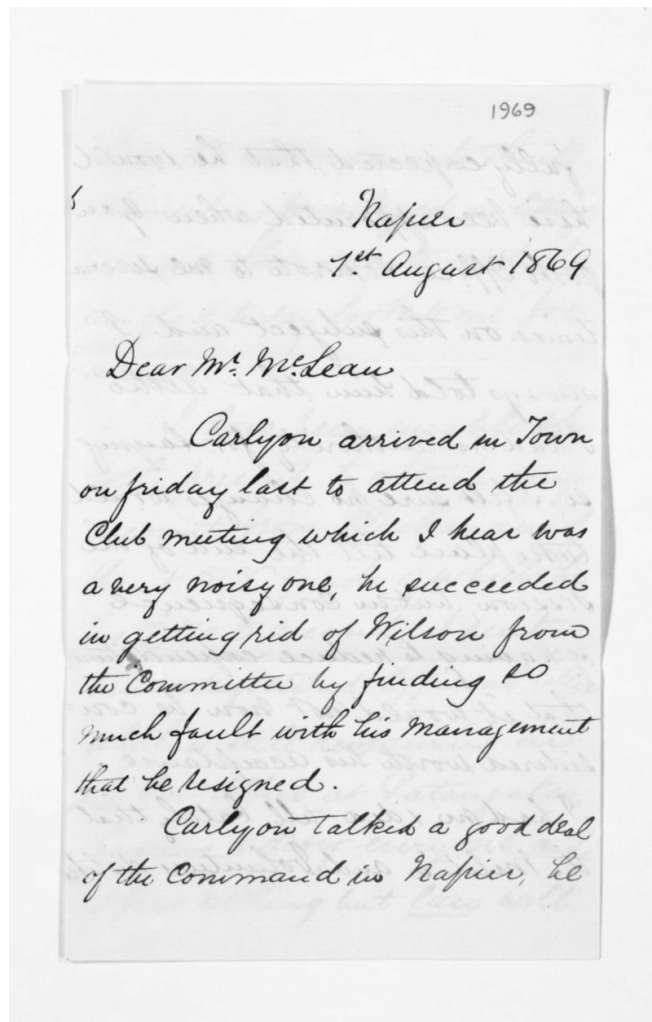 1969
Napier
1st August 1869
Dear Mr. McLean
Carlyon arrived in Town
on friday last to attend the
Club meeting which I hear was
a very noisy one, he succeeded
in getting rid of Wilson from
the Committee by finding so
much fault with his management
that he resigned.
Carlyon talked a good deal
of the Command in Napier, he